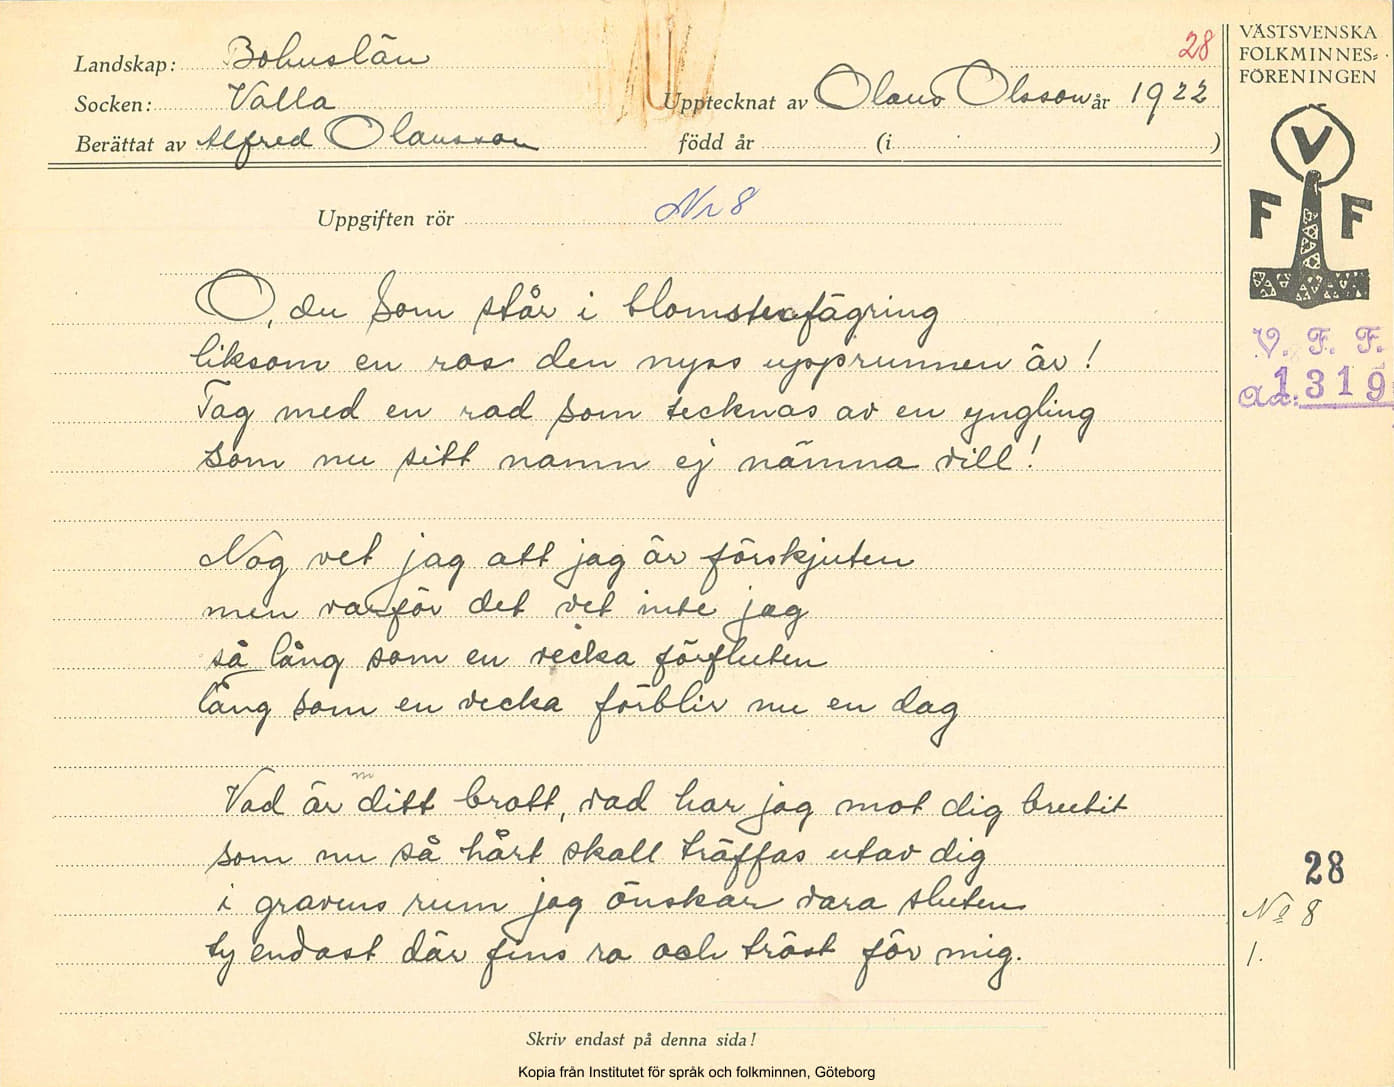 Landskap: Bohuslän
28
Socken: Valla
Upptecknat av Olaus Olsson år 1922
Berättat av Alfred Olausson
född år (i )
Uppgiften rör Nr 8
O, du som står i blomsterfägring
liksom en ros den nyss upprunnen är!
Tag med en rad som tecknas av en yngling
som nu sitt namn ej nämna vill!
Nog vet jag att jag är förskjuten
men varför det vet inte jag
så lång som en vecka förfluten
lång som en vecka förblir nu en dag
m
Vad är ditt brott, vad har jag mot dig brutit
som nu så hårt skall träffas utav dig
i gravens rum jag önskar vara sluten
ty endast där fins ro och tröst för mig.
Skriv endast på denna sida!
VÄSTSVENSKA
FOLKMINNES=
FÖRENINGEN
V
F F
V. F. F.
Ac: 1319
28
No 8
1.
Kopia från Institutet för språk och folkminnen, Göteborg